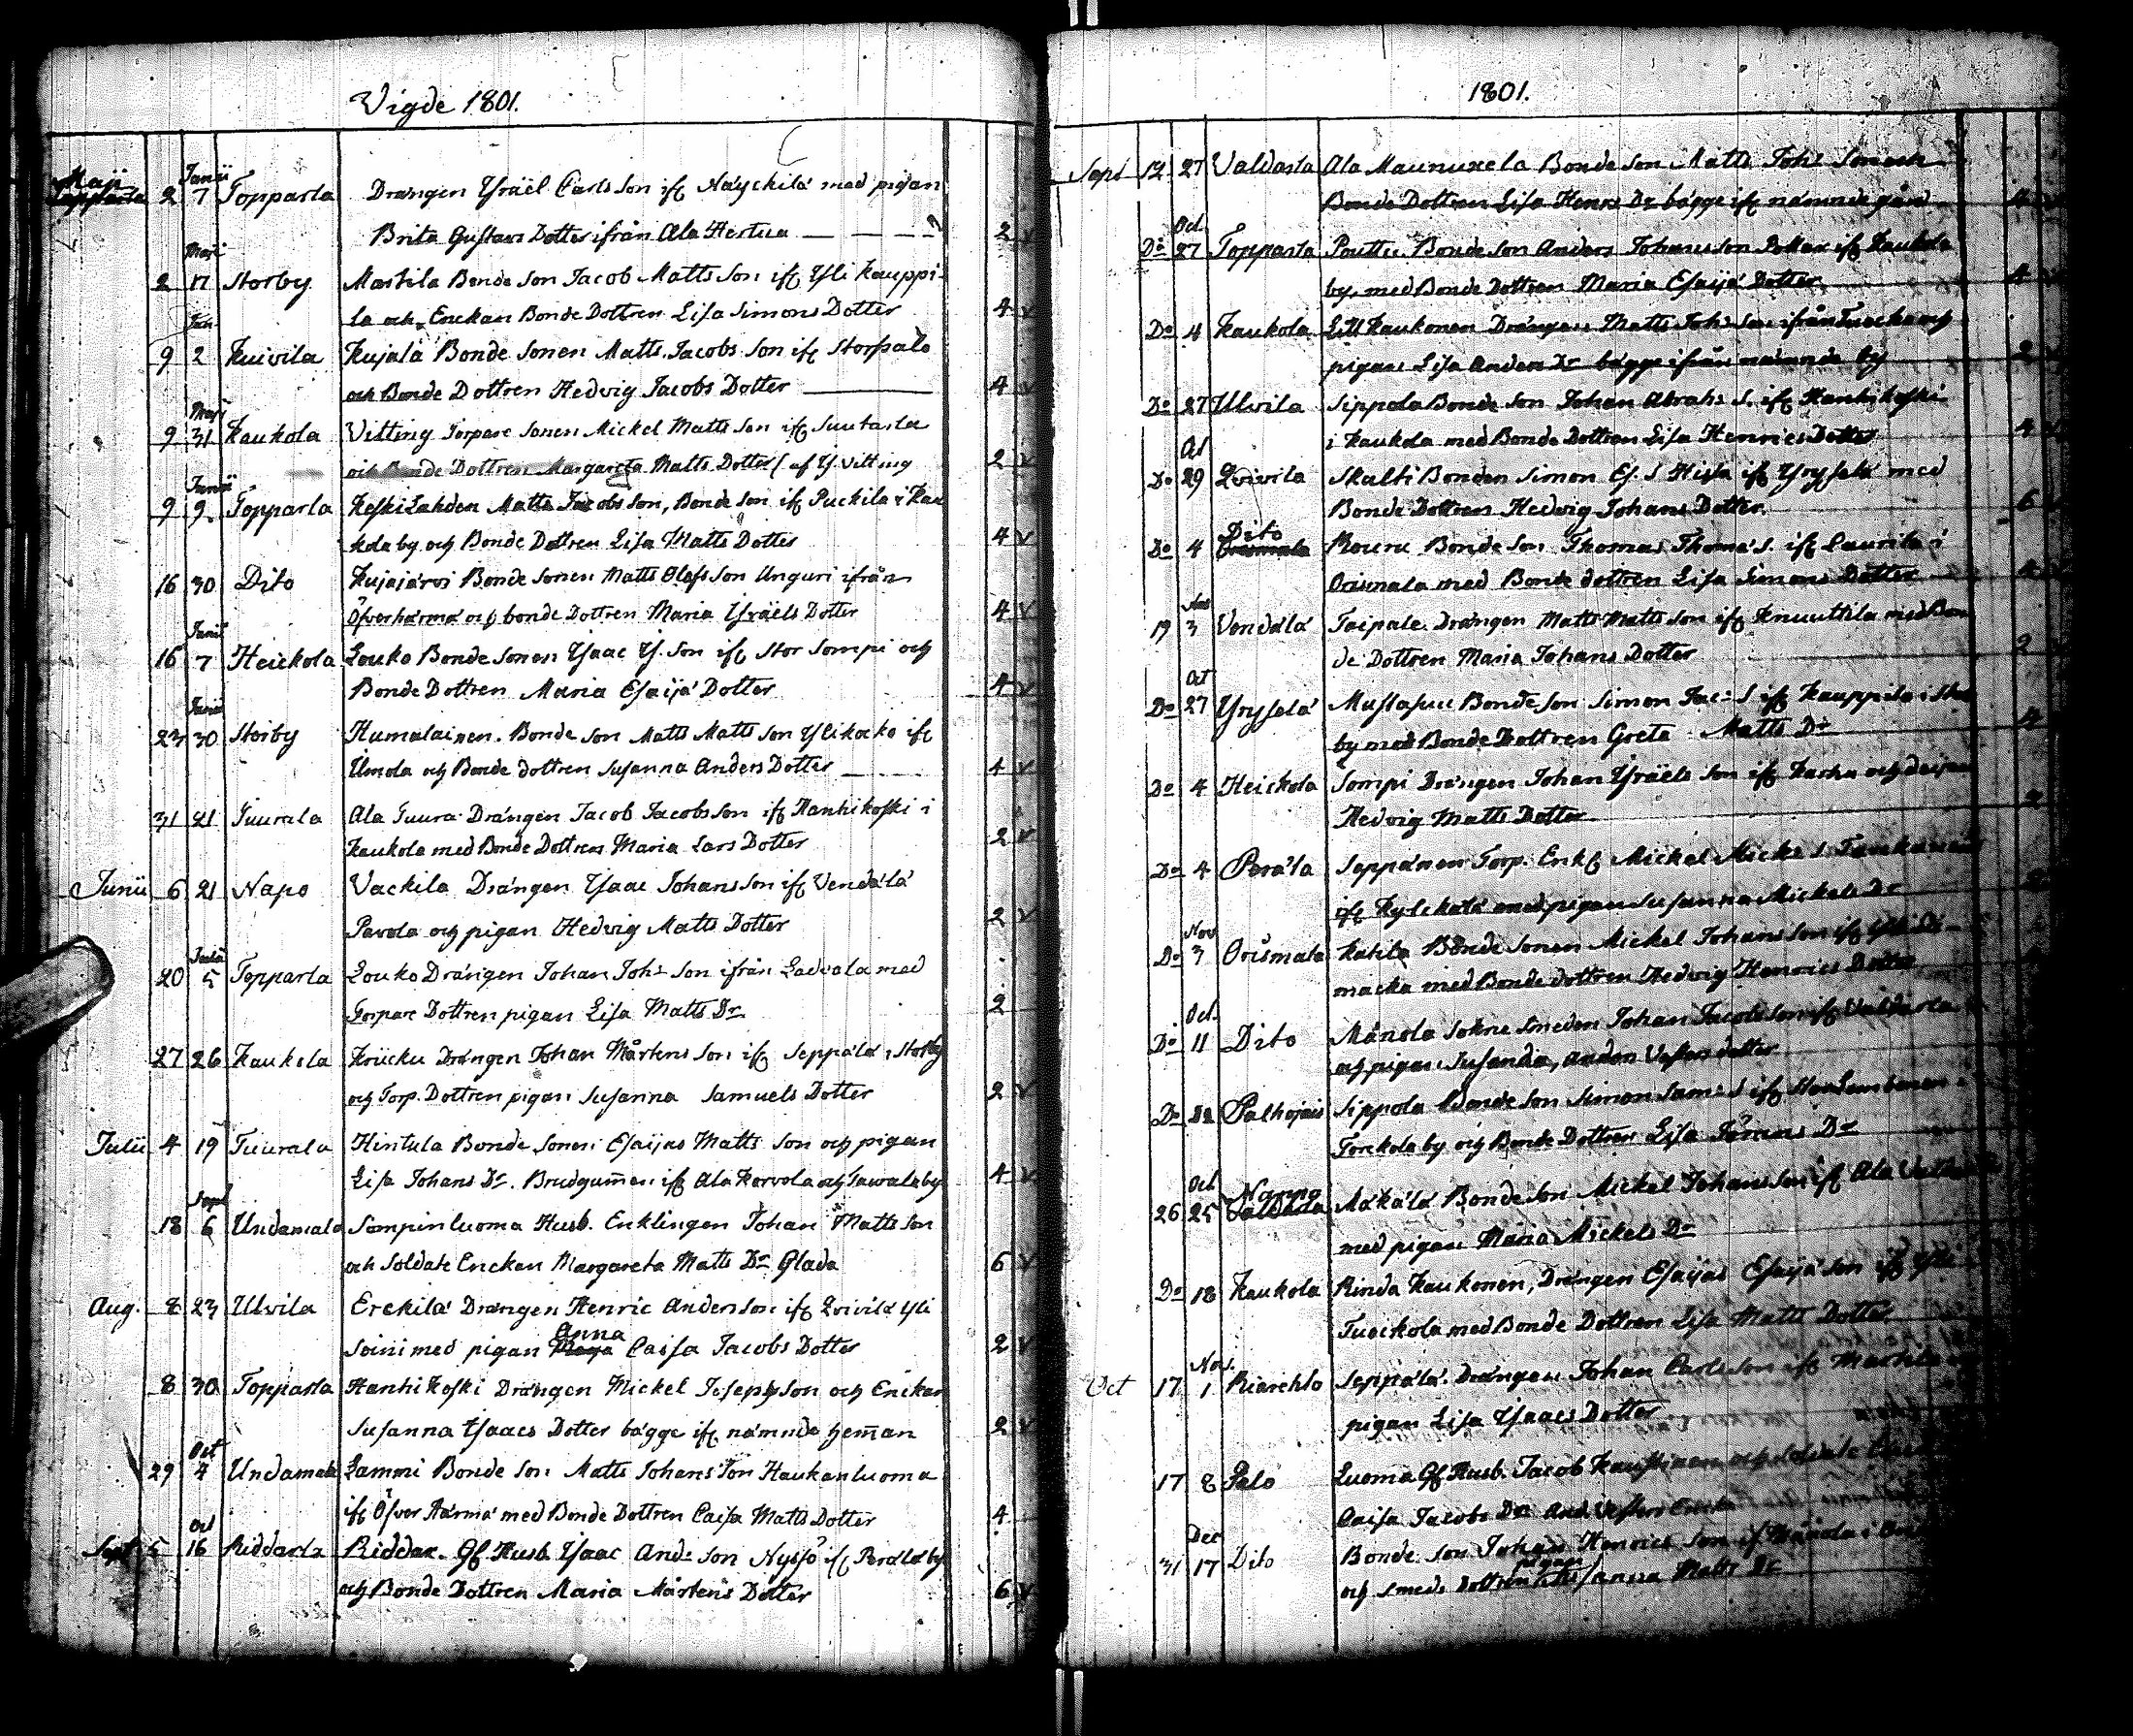 Vigde 1801.
Maji 2 Junii 7 Topparla Drängen Ysraël Carls Son ifr Näyckilä med pigan
Brita Gustavs Dotter ifrån Ala Hertua 2 v
2 Maji 17 Storby Martila Bonde Son Jacob Matts Son ifr Yli Kauppi-
la och Enckan Bonde Dottren Lisa Simons Dotter 4 v
9 Jun 2 Kuivila Kujala Bonde Sonen Matts Jacobs Son ifr Storpalo
och Bonde Dottren Hedvig Jacobs Dotter 4 v
9 Maji 31 Kaukola Vitting Torpare Sonen Mickel Matts Son ifr Suutarla
och Bonde Dottren Margareta Matts Dotter af Y. Vitting 2 v
9 Junii 9 Topparla KeskiLahden Matts Jacobs Son, Bonde Son ifr Puckila i Kau
kola by och Bonde Dottren Lisa Matts Dotter 4 v
16 30 Dito Kujajärvi Bonde Sonen Matts Olofs Son Unguri ifrån
Öfverhärmä och bonde Dottren Maria Ysraëls Dotter 4 v
16 Junii 7 Heickola Louko Bonde Sonen Ysaac Y. Son ifr Stor Sompi och
Bonde Dottren Maria Esaijä Dotter 4 v
23 Junii 30 Storby Humalainen Bonde Son Matts Matts Son Ylikocko ifr
Ilmola och Bonde dottren Susanna Anders Dotter 4 v
31 21 Tuurala Ala Tuura Drängen Jacob Jacobs Son ifr Hanhikoski i
Kaukola med Bonde Dottren Maria Lars Dotter 2 v
Junii 6 21 Napo Vackila Drängen Ysaac Johans Son ifr Vendälä
Pavola och pigan Hedvig Matts Dotter 2 v
20 5 Topparla Louko Drängen Johan Johs Son ifrån Ladvala med
Torpare Dottren pigan Lisa Matts Dr 2
27 26 Kaukola Krücku Drängen Johan Mårtens Son ifr Seppälä i Storby
och Torp. Dottren pigan Susanna Samuels Dotter 2 v
Julii 4 19 Tuurala Hintula Bonde Sonen Esaijas Matts Son och pigan
Lisa Johans Dr. Brudgumen ifr Ala Kervola och Tawala by 4 v
18 Sept 6 Undamala Sompinluoma Husb. Encklingen Johan Matts Son
och Soldate Enckan Margareta Matts Dr Glada 6 v
Aug. 8 23 Ulvila Erckilä Drängen Henric Anderson ifr Qvivila Yli
Soini med pigan Anna Caisa Jacobs Dotter 2 v
8 30 Topparla Hanhikoski Drängen Mickel Josephs Son och Enckan
Susanna Ysaacs Dotter bägge ifr nämnde heman 2 v
29 Oct 4 Undamala Lammi Bonde Son Matts Johans Son Haukanluoma
ifr Öfver Härmä med Bonde Dottren Caisa Matts Dotter 4
Sept 5 Oct 16 Riddarla Riddar Gf. Husb. Ysaac Ands Son Nyssö ifr Perälä by
och Bonde Dottren Maria Mårtens Dotter 6 v
1801.
Sept 12 27 Valdarla Ala Maunuxela Bonde Son Matts Johs Son och
Bonde Dottren Lisa Henrs Dr bägge ifr nämnde gård 4
Do Oct. 27 Topparla Pouttu Bonde Son Anders Johansson ifr Kaukola
by, med Bonde Dottren Maria Esaijä Dotter 4
Do 4 Kaukola Lill Kaukonen Drängen Matts Johs Son ifrån och
pigan Lisa Anders Dr bägge ifrån nämnde by 2
Do 27 Ulvila Sippola Bonde Son Johan Abrahs S. ifr Hanhikoski
i Kaukola med Bonde Dottren Lisa Henrics Dotter 4
Do Oct 29 Qvivila Skulti Bonden Simon Es. S Hissa ifr Yryselä med
Bonde Dottren Hedvig Johans Dotter 6
Do 4 Dito Rouru Bonde Son Thomas Thomä S. ifr Laurila i
Orismala med Bonde dottren Lisa Simons Dotter 4
19 3 Vendälä Taipale Drängen Matts Matts Son ifr Knuuttila med Bon
de Dottren Maria Johans Dotter 2
Do Oct 27 Yryselä Mustasuu Bonde Son Simon Jac: S ifr Kauppila i Stor
by med Bonde Dottren Greta Matts Dr 4
Do 4 Heickola Sompi Drängen Johan Ysraëls Son ifr Karhu och
Hedvig Matts Dotter 2
Do 4 Perälä Seppänen Torp. Enkl Mickel Mickels S.
ifr Kylckälä med pigan Susanna Mickels Dr
Do Nov 3 Orismala Katila Bonde Sonen Mickel Johans Son ifr Yli
macka med Bonde dottren Hedvig Henrics Dotter
Do Oct. 11 Dito Månola Sokne Smeden Johan Jacobs Son ifr Valdarla
och pigan Susanna, dotter
Do Palhojais Sippola Bonde Son Simon Sam: S ifr
Torckola by och Bonde Dottren Lisa Dr
26 Oct 25 Nappo Mäkälä Bonde Son Mickel Johans Son ifr Ala
med pigan Maria Mickels Dr
Do 18 Kaukola Rinda Kaukonen, Drängen Esaijas Esaijä Son ifr Yli
Tuockola med Bonde Dottren Lisa Matts Dotter
Oct 17 Nov. 1 Riarchlo Seppälä Drängen Johan Carls Son ifr
pigan Lisa Ysaacs Dotter
17 8 Palo Luoma Gf. Husb. Jacob och Soldate
Caisa Jacobs Dr
31 Dec 17 Dito Bonde Son Johan Henrics Son if
och Smeds Dottren pigan Matts Dr